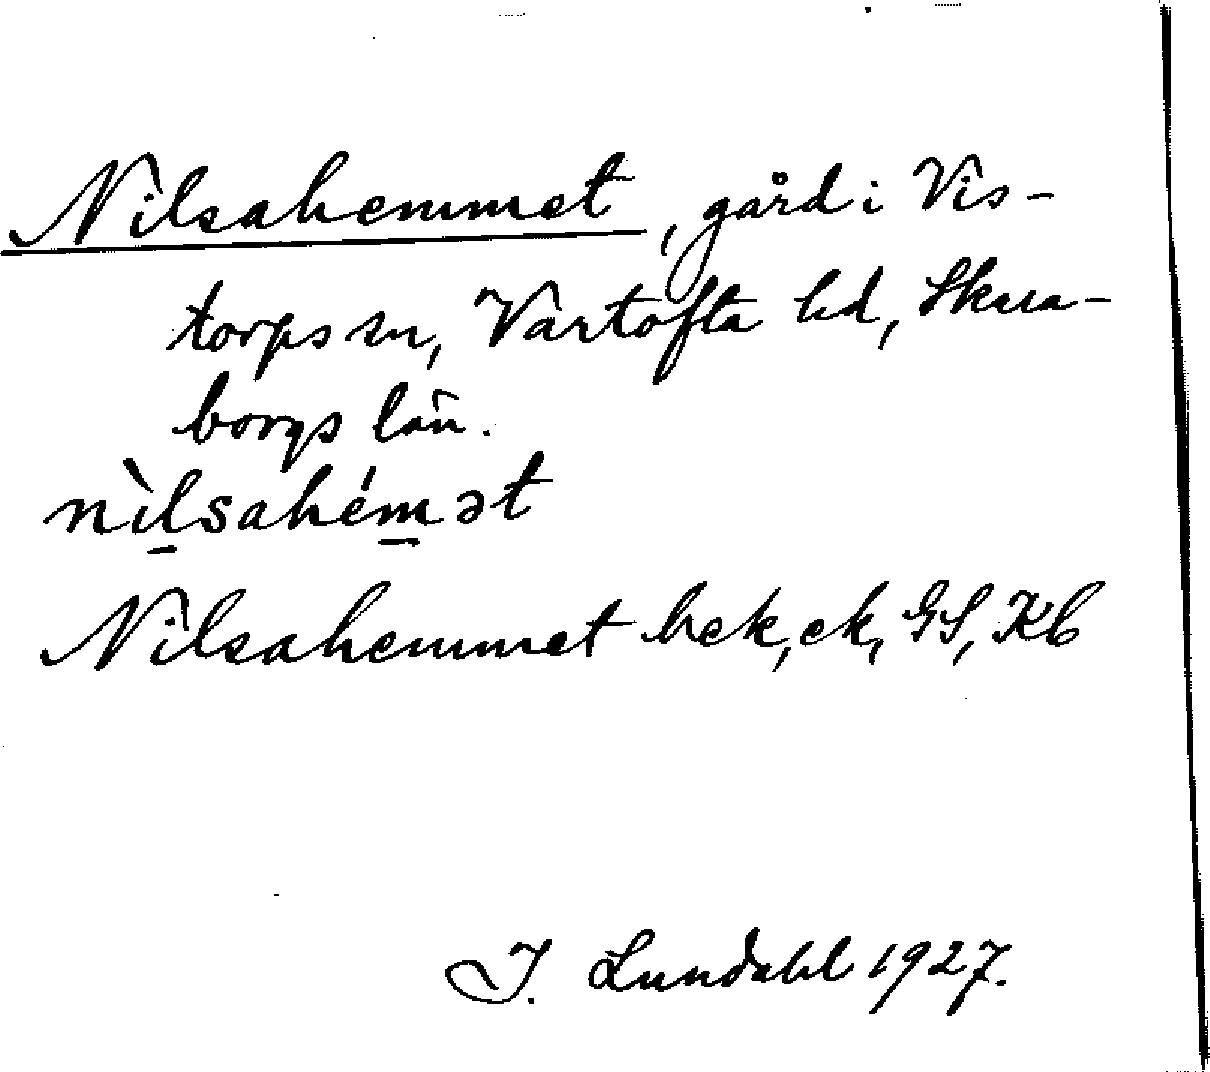 Nilsahemmet, gård i Vis-
torps sn, Vartofta hd, Skara-
borgs län.
nìl̲sahém̲ət
Nilsahemmet hek, ek, GS, Kb
I. Lundahl 1927.